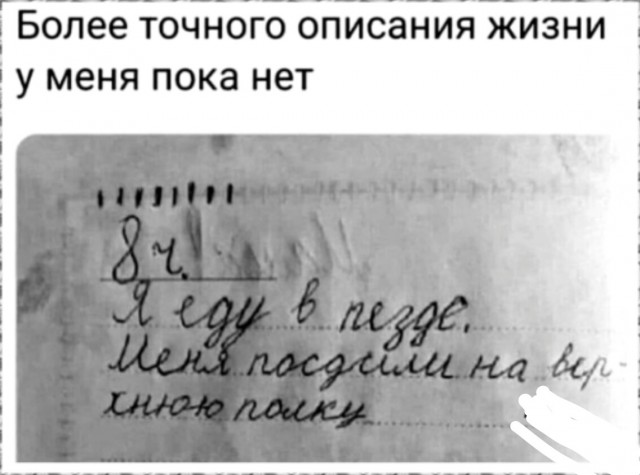 Более точного описания жизни
у меня пока нет
8 ч.
Я еду в пезде.
Меня посдили на вер-
хнюю полку